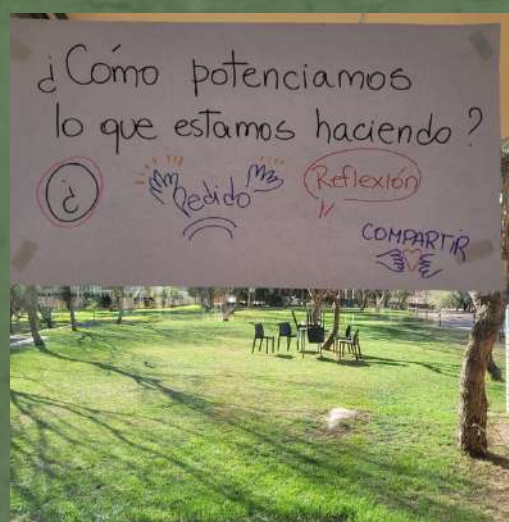 ¿Cómo potenciamos
lo que estamos haciendo?
¿
Pedido
Reflexión
COMPARTIR